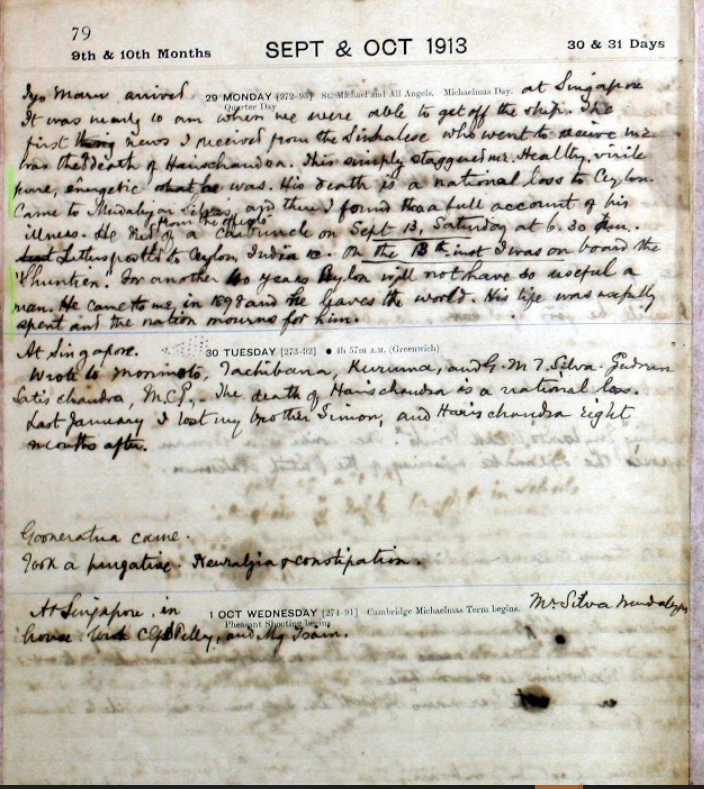 79
9th & 10th Months SEPT & OCT 1913 30 & 31 Days
Iyo Maru arrived 29 MONDAY [272-93] St. Michael and All Angels. Michaelmas Day. at Singapore
Quarter Day
It was nearly 10 am when we were able to get off the ship. The
first thing news I received from the Sinhalese who went to receive me
was the death of Harischandra. This simply staggered me. Healthy, virile
pure, energetic was. His death is a national loss to Ceylon.
Came to Mudalyar Silva's and there I found a full account of his
illness. He died of a carbuncle on Sept 13, Saturday at 6.30
Letters posted to Ceylon, India &c. On the 13th inst I was on board the
"Shuntien". For another 40 years Ceylon will not have so useful a
man. He came to me in 1898 and he leaves the world. His life was usefully
spent and the nation mourns for him.
At Singapore. 30 TUESDAY [273-92] 4h 57m a.m. (Greenwich)
Wrote to Morimoto, Tachibana, Kuruma, and G. M. T. Silva.
Satis chandra, The death of Harischandra is a national loss.
Last January I lost my brother Simon, and Harischandra eight
months after.
Gooneratna came.
Took a purgative. Neuralgia & constipation.
At Singapore. in 1 OCT WEDNESDAY [274-91] Cambridge Michaelmas Term begins. Mr Silva Mudalyar
Pheasant Shooting begins
house. and Mg